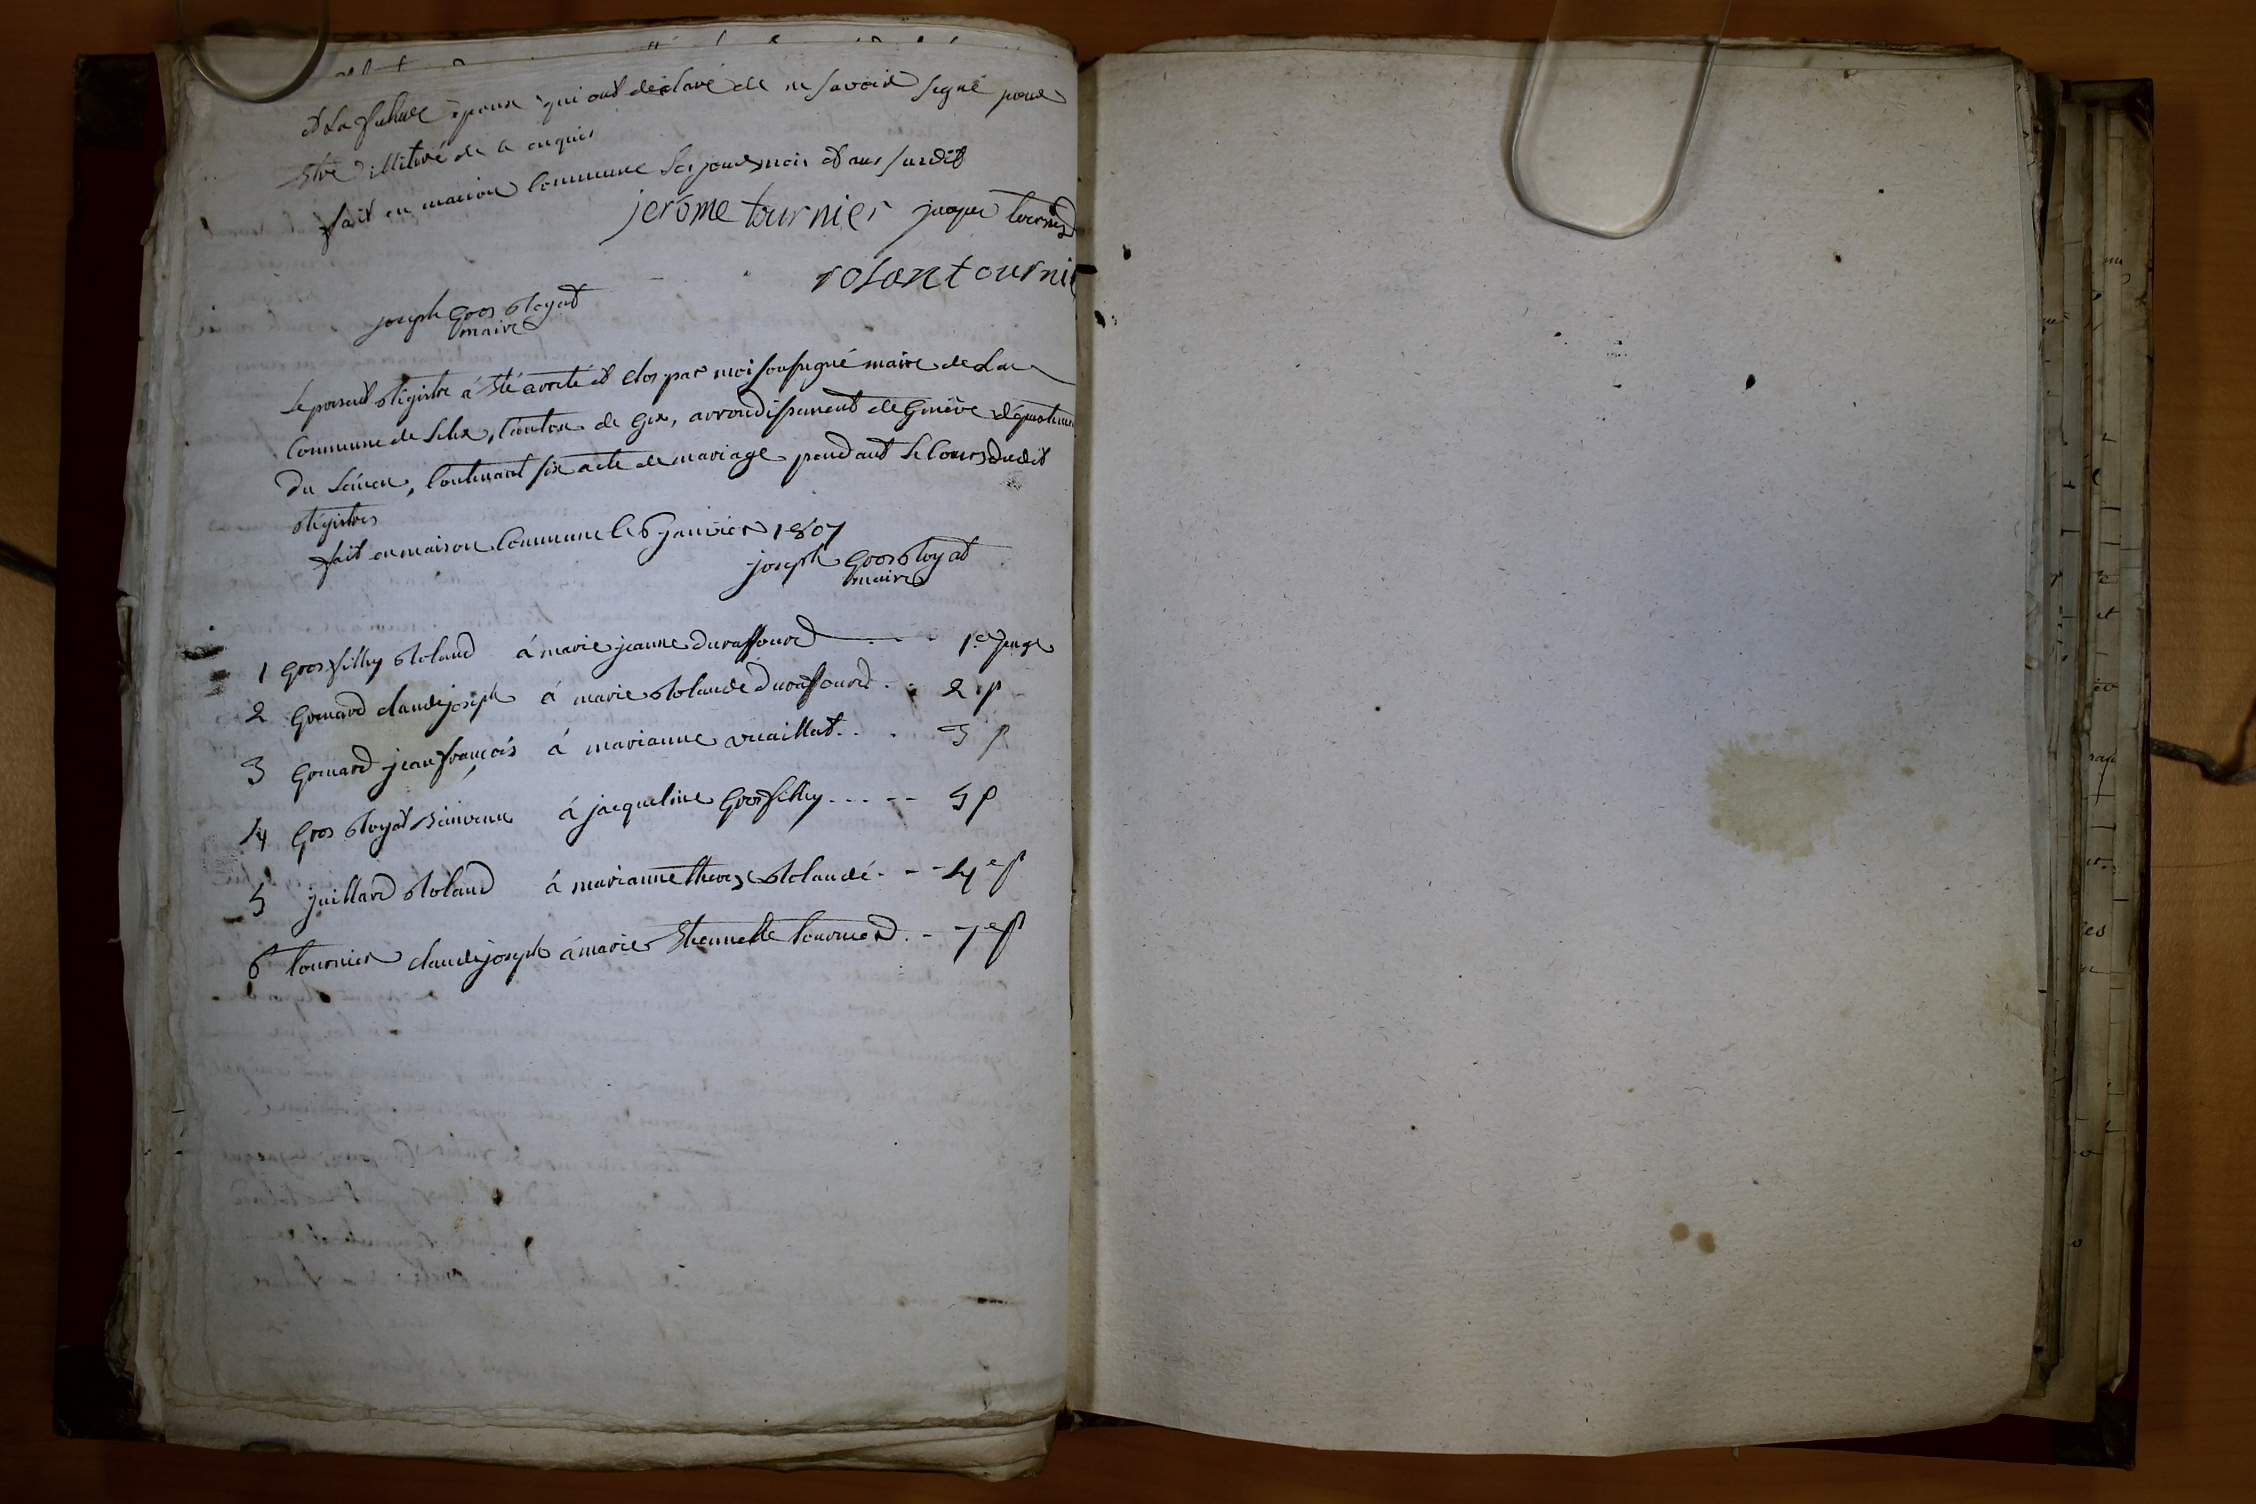 et La future epouse qui ont déclaré de ne savoir signé pour
etre illitéré de ce enquis
fait en maison Commune Les jour mois et ans susdit
jerôme tournier jaque tournier
rolan tournie
joseph Gros Royat
maire
Le present Régistre á été arreté et clos par moi soussigné maire de La
Commune de Lelex, Canton de Gex, arrondissement de Genève département
Du Léman, Contenant six acte de mariage pendant Le Cours dudit
Régistres
fait en maison Commune le 6 janvier 1807
joseph Gros Royat
maire
1 Grosfilley Roland á marie jeanne duraffourd 1.re page
2 Grenard claude joseph á marie Rolande duraffourd . . 2 p
3 Grenard jean françois á marianne vuaillat . . . 3 p
4 Gros Royat Bienvenu á jacqueline Grosfilley . . . - - 5 p
5 juillard Roland á marianne therese Rolandé . - - 4e p
6 tournier claude joseph á marie Etiennette tournier . - 7e p